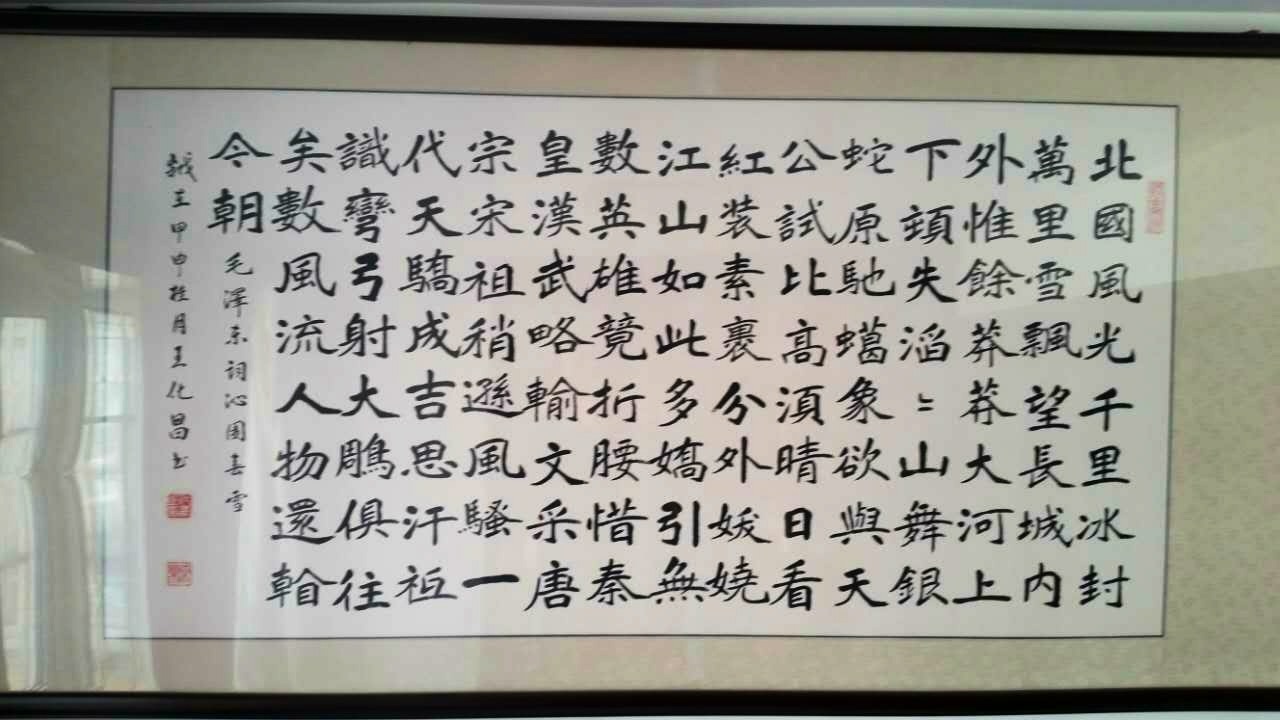 北國風光千里冰封
萬里雪飄望長城内
外惟餘莽莽大河上
下頓失滔〻山舞銀
蛇原馳蠟象欲與天
公試比高湏晴日看
紅装素裹分外妖嬈
江山如此多嬌引無
數英雄競折腰惜秦
皇漢武略輸文采唐
宗宋祖稍遜風騷一
代天驕成吉思汗祗
識彎弓射大鵰俱往
矣數風流人物還看
今朝
毛澤东詞沁園春雪
歲在甲申桂月王化昌书